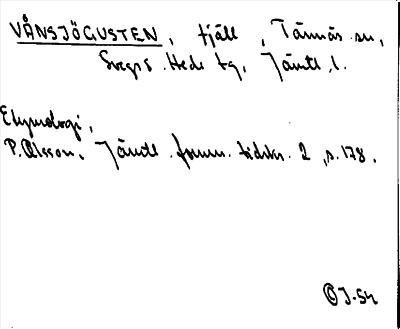 VÅNSJÖGUSTEN, fjäll, Tännäs sn,
Svegs o. Hede tg, Jämtl. l.
Etymologi,
P. Olsson. Jämtl. fornm. tidskr. 2, s. 178.
J-54